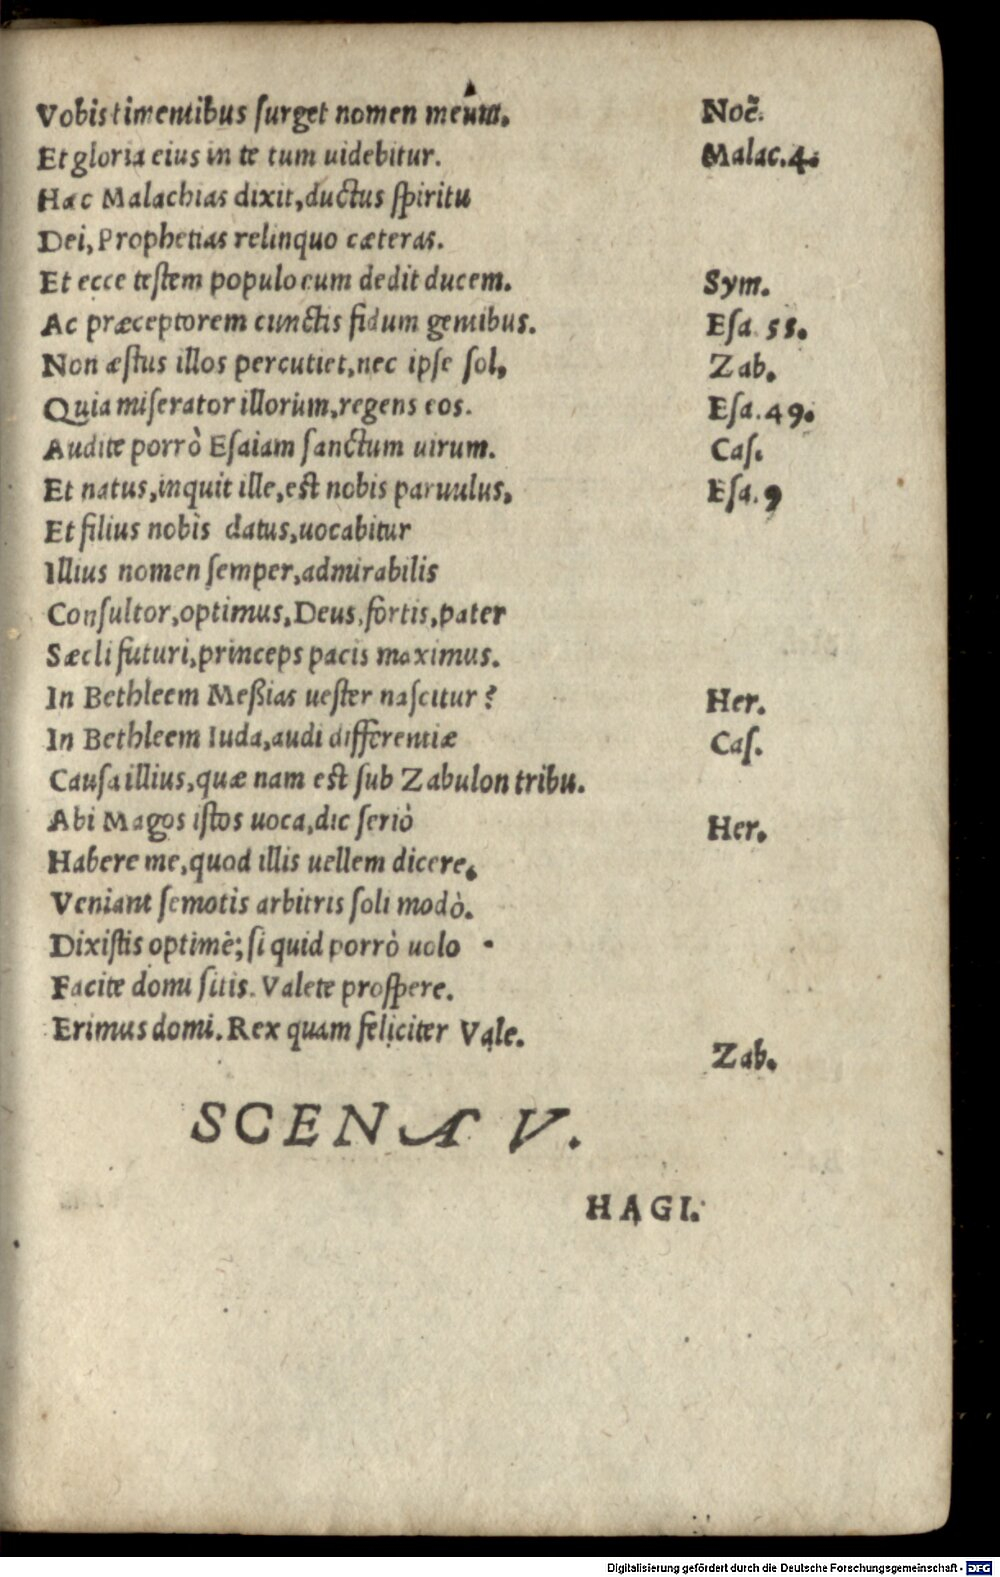 Vobis timentibus ſurget nomen meum. Noẽ.
Et gloria eius in te tum uidebitur. Malac.4.
Hac Malachias dixit, ductus ſpiritu
Dei, Prophetias relinquo cæteras.
Et ecce teſtem populo eum dedit ducem. Sym.
Ac præceptorem cunctis fidum gentibus. Eſa.55.
Non æſtus illos percutiet, nec ipſe ſol, Zab.
Quia miſerator illorum, regens eos. Eſa.49.
Audite porrò Eſaiam ſanctum uirum. Caſ.
Et natus, inquit ille, eſt nobis paruulus, Eſa.9
Et filius nobis datus, uocabitur
Illius nomen ſemper, admirabilis
Conſultor, optimus, Deus, fortis, pater
Sæcli futuri, princeps pacis maximus.
In Bethleem Meßias ueſter naſcitur? Her.
In Bethleem Iuda, audi differentiæ Caſ.
Cauſa illius, quæ nam eſt ſub Zabulon tribu.
Abi Magos iſtos uoca, dic ſeriò Her.
Habere me, quod illis uellem dicere,
Veniant ſemotis arbitris ſoli modò.
Dixiſtis optimè; ſi quid porrò uolo
Facite domi ſitis. Valete proſpere.
Erimus domi. Rex quam feliciter Vale. Zab.
SCENA V.
HAGI.
Digitalisierung gefördert durch die Deutsche Forschungsgemeinschaft - DFG